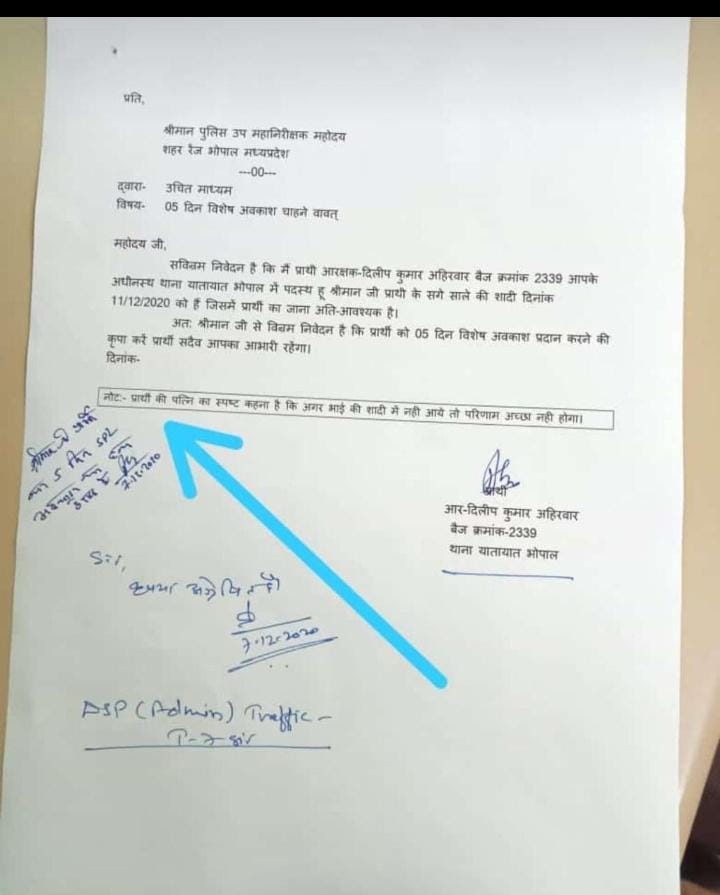 प्रति,
श्रीमान पुलिस उप महानिरीक्षक महोदय
शहर रेंज भोपाल मध्यप्रदेश
---00---
द्वारा- उचित माध्यम
विषय- 05 दिन विशेष अवकाश चाहने वावत्
महोदय जी,
सविनम्र निवेदन है कि मैं प्रार्थी आरक्षक-दिलीप कुमार अहिरवार बैज क्रमांक 2339 आपके
अधीनस्थ थाना यातायात भोपाल में पदस्थ हू श्रीमान जी प्रार्थी के सगे साले की शादी दिनांक
11/12/2020 को हैं जिसमें प्रार्थी का जाना अति-आवश्यक है।
अत: श्रीमान जी से विनम्र निवेदन है कि प्रार्थी को 05 दिन विशेष अवकाश प्रदान करने की
कृपा करें प्रार्थी सदैव आपका आभारी रहेगा।
दिनांक-
नोट:- प्रार्थी की पत्नि का स्पष्ट कहना है कि अगर भाई की शादी में नही आये तो परिणाम अच्छा नही होगा।
श्रीमान जी
5 दिन SPL
7-12-2020
प्रार्थी
आर-दिलीप कुमार अहिरवार
बैज क्रमांक-2339
थाना यातायात भोपाल
Sir,
कृपया अग्रेषित है
7-12-2020
DSP (Admin) Traffic -
sir